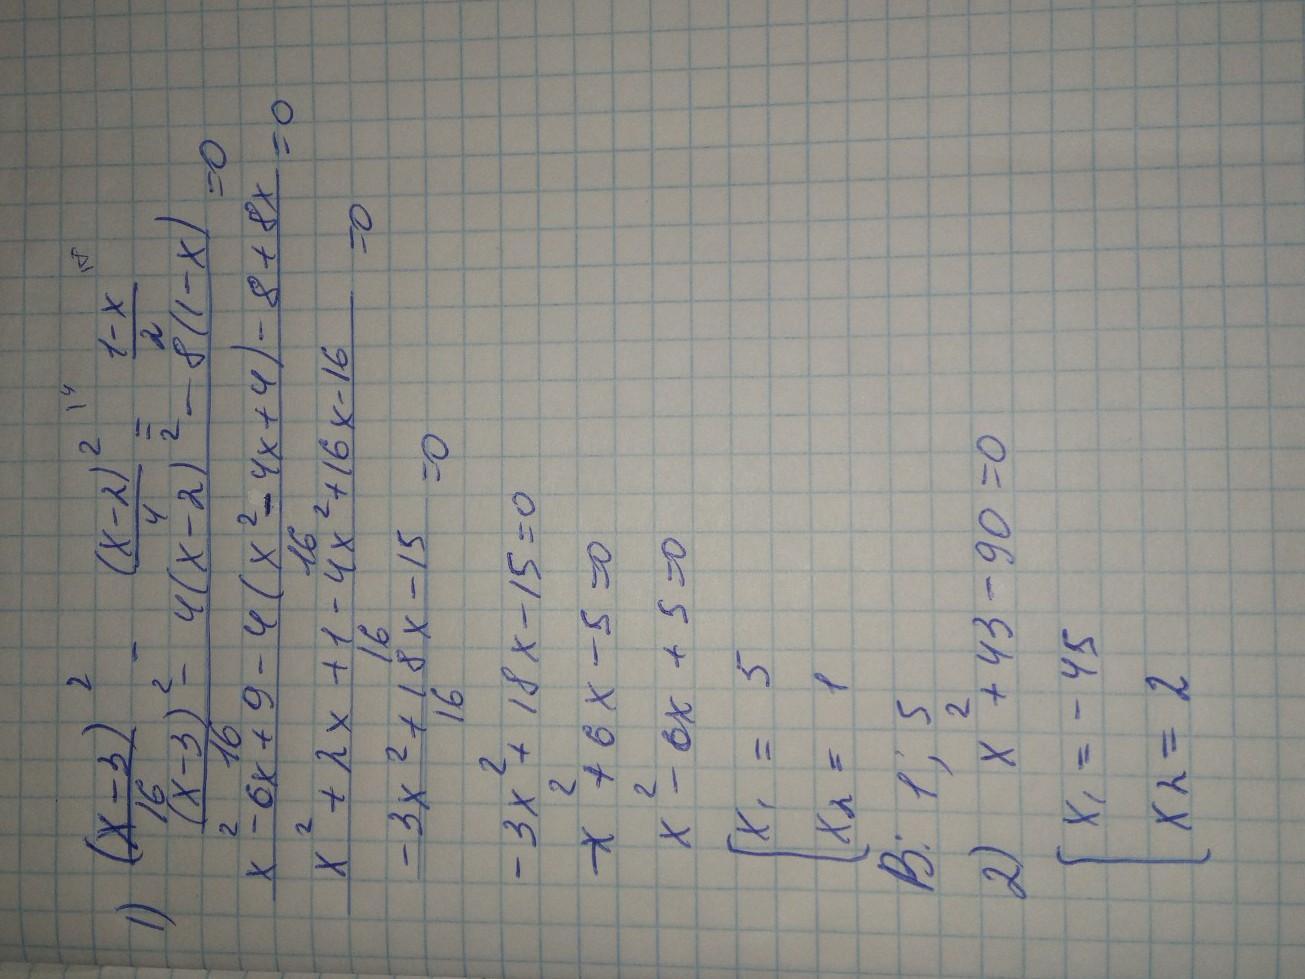 1) (x-3)²/16 - (x-2)²/4 = 1-x/2
(x-3)² - 4(x-2)² - 8(1-x)/16 =0
x²-6x+9-4(x²-4x+4)-8+8x/16 =0
x²+2x+1-4x²+16x-16/16 =0
-3x²+18x-15/16 =0
-3x²+18x-15=0
-x²+6x-5=0
x²-6x+5=0
[x₁ = 5
x₂ = 1
В: 1; 5
2) x²+43-90=0
[x₁=-45
x₂=2